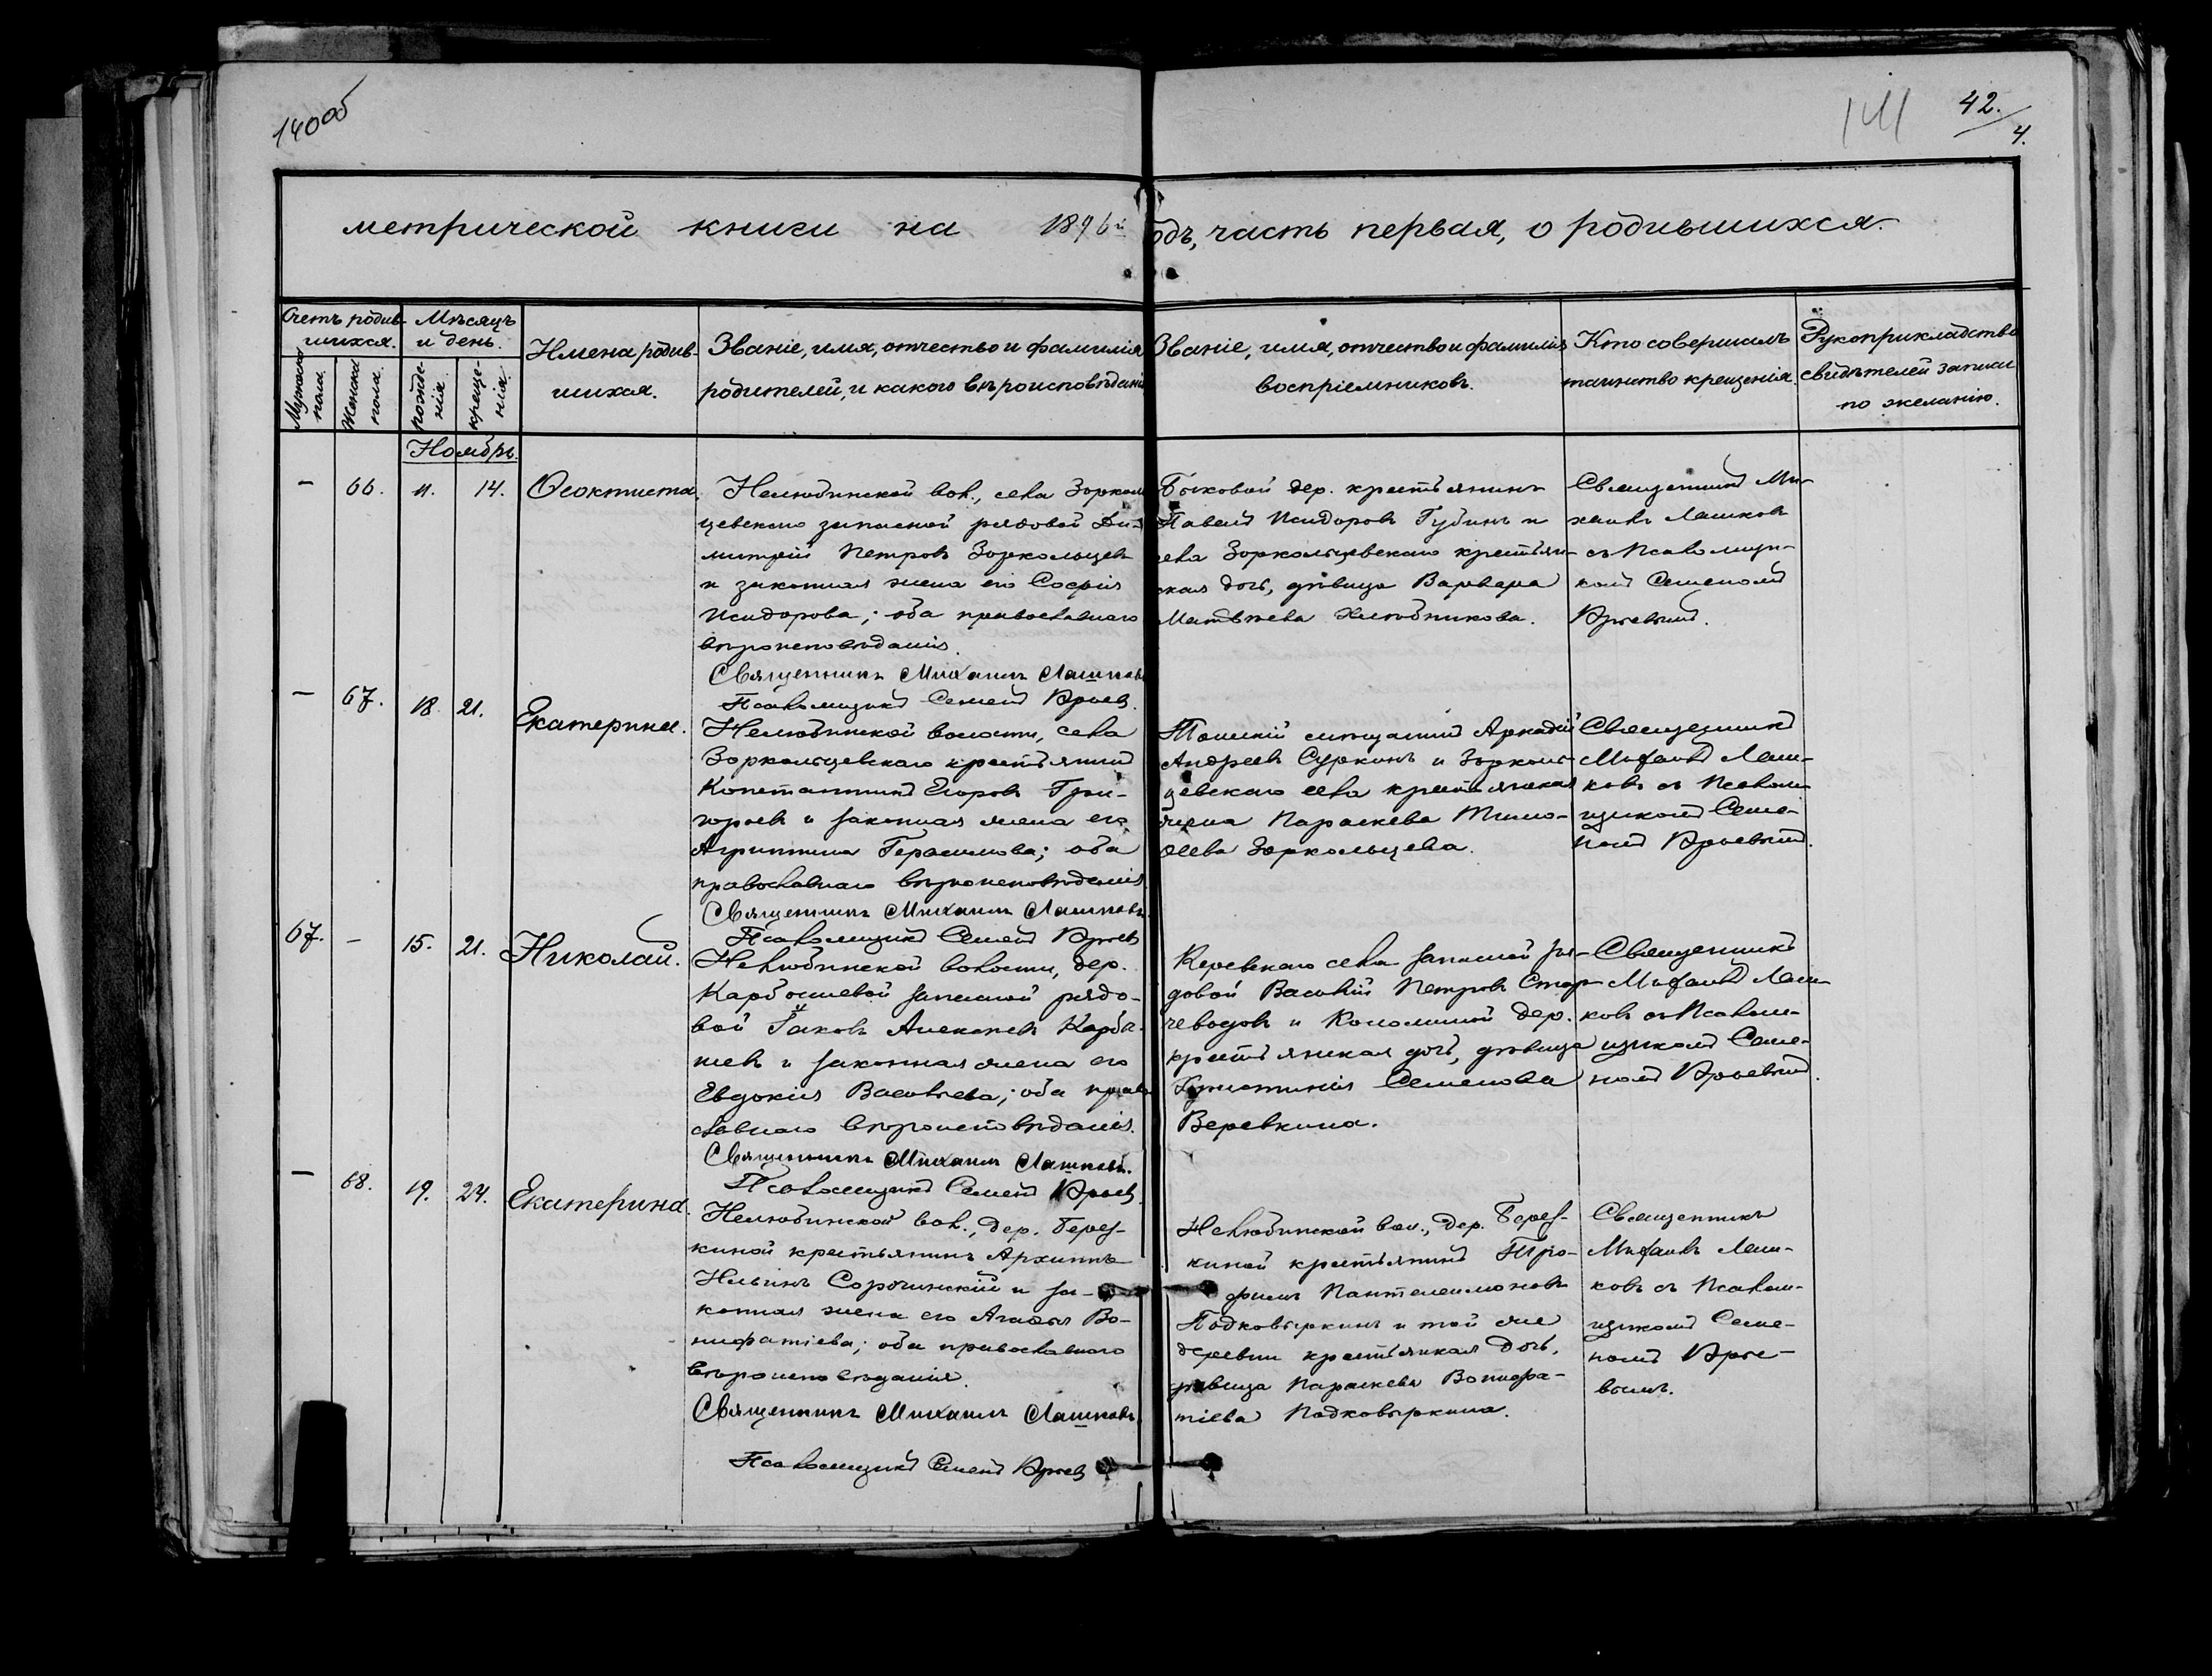 140об
141
42.
4.
метрической книги на 1896й
одъ, часть первая, о родившихся.
Счетъ родив-
шихся.
Мужеска
пола.
Женска
пола.
Мѣсяцъ
и день.
рожде-
нія.
креще-
нія.
Имена родив-
шихся.
Званіе, имя, отчество и фамилія
родителей, и какого вѣроисповѣданія
Званіе, имя, отчество и фамилія
воспріемниковъ.
Кто совершалъ
таинство крещенія.
Рукоприкладство
свидѣтелей записи
по желанію.
Ноябрь.
— 66. 11. 14. Ѳеоктиста.
Нелюбинской вол., села Зорколь
цевскаго запасной рядовой Ди-
митрій Петровъ Зоркольцевъ
и законная жена его Софія
Исидорова; оба православнаго
вѣроисповѣданія.
Священникъ Михаилъ Лашковъ
Псаломщикъ Семенъ Юрьев.
Бычковой дер. крестьянинъ
Павелъ Исидоровъ Губинъ и
села Зоркольцевскаго крестьян-
ская дочь, дѣвица Варвара
Матвѣева
Священникъ Ми-
хаилъ Лашковъ
съ Псаломщи-
комъ Семеномъ
Юрьевымъ.
— 67. 18. 21. Екатерина.
Нелюбинской волости, села
Зоркольцевскаго крестьянинъ
Константинъ Егоровъ Гри-
горьевъ и законная жена его
Агриппина Герасимова; оба
православнаго вѣроисповѣданія
Священникъ Михаилъ Лашковъ.
Псаломщикъ Семенъ Юрьевъ
Томскій мѣщанинъ Аркадій
Андреевъ Суркинъ и Зорколь-
цевскаго села крестьянская
жена Параскева Тимо-
ѳеева Зоркольцева.
Священникъ
Михаилъ Лаш-
ковъ съ Псалом-
щикомъ Семе-
номъ Юрьевымъ.
67. — 15. 21. Николай.
Нелюбинской волости, дер.
Карбышевой запасной рядо-
вой Іаковъ Алексѣевъ Карбы-
шевъ и законная жена его
Евдокія Васильева; оба право
славнаго вѣроисповѣданія.
Священникъ Михаилъ Лашковъ.
Псаломщикъ Семенъ Юрьев.
села запасной ря-
довой Василій Петровъ
и дер.
крестьянская дочь, дѣвица
Семенова
Веревкина.
Священникъ
Михаилъ Лаш-
ковъ съ Псалом-
щикомъ Семе-
номъ Юрьевымъ.
— 68. 19. 24. Екатерина.
Нелюбинской вол., дер. Берез-
киной крестьянинъ Архиппъ
Ильинъ Сорочинскій и за-
конная жена его Агафья Во-
нифатіева; оба православнаго
вѣроисповѣданія.
Священникъ Михаилъ Лашковъ.
Псаломщикъ Семенъ Юрьев
Нелюбинской вол., дер. Берез-
киной крестьянинъ Тро-
фимъ Пантелеимоновъ
Подковыркинъ и той же
деревни крестьянская дочь,
дѣвица Параскева Вонифа-
тіева Подковыркина.
Священникъ
Михаилъ Лаш-
ковъ съ Псалом-
щикомъ Семе-
номъ Юрье-
вымъ.